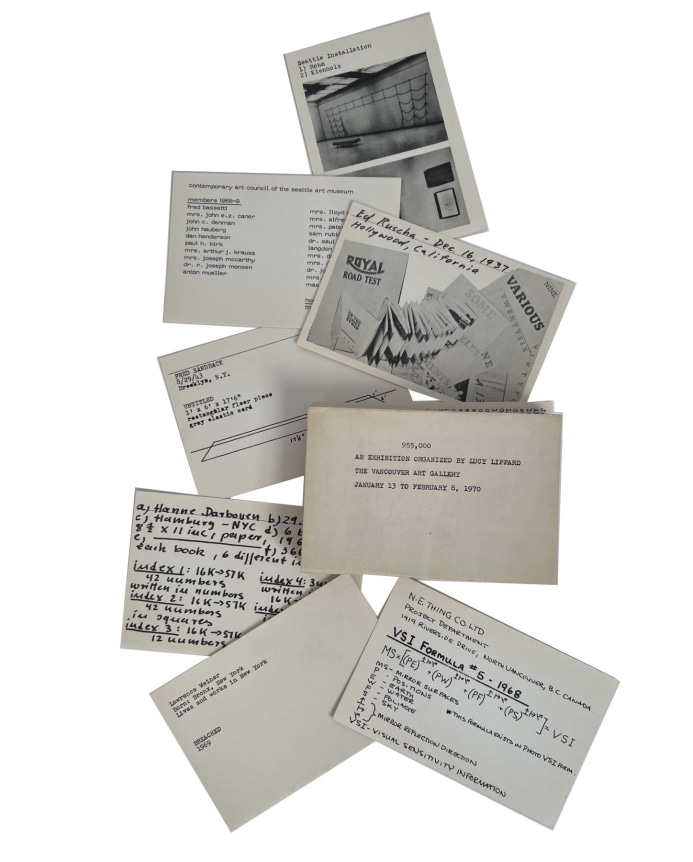 Seattle Installation
1) Rohm
2) Kienholz
contemporary art council of the seattle art museum
members 1968-9
fred bassetti
mrs. john e.z. caner
john c. denman
john hauberg
dan henderson
paul h. kirk
mrs. arthur j. krauss
mrs. joseph mccarthy
dr. r. joseph monsen
anton mueller
mrs. lloyd
mrs. alfre
mrs. pete
sam rubi
dr. saul
langdon
mrs. d
dr. jo
mrs.
max
Ed Ruscha - Dec. 16, 1937
Hollywood, California
ROYAL
ROAD TEST
VARIOUS
SOME
NINE
TWENTYSIX
FRED SANDBACK
8/29/43
Brooklyn, N.Y.
UNTITLED
1' x 6' x 17'6"
rectangular floor piece
gray elastic cord
955,000
AN EXHIBITION ORGANIZED BY LUCY LIPPARD
THE VANCOUVER ART GALLERY
JANUARY 13 TO FEBRUARY 8, 1970
a) Hanne Darboven b) 29.
c) Hamburg - NYC d) 6 b
8 ½ x 11 inc, paper, 196
e) f) 366
each book, 6 different i
index 1: 16K→57K
42 numbers
written in numbers
index 2: 16K→57K
42 numbers
in squares
index 3: 16K→57K
12 numbers
index 4:
written
16K→
Lawrence Weiner
Born: Bronx, New York
Lives and works in New York
BREACHED
1969
N.E. THING CO. LTD
PROJECT DEPARTMENT
1419 RIVERSIDE DRIVE, NORTH VANCOUVER, B.C. CANADA
VSI FORMULA #5 - 1968
MS - MIRROR SURFACES
POSITIONS
EARTH
WATER
FOLIAGE
SKY
*THIS FORMULA EXISTS IN PHOTO VSI FORM.
MIRROR REFLECTION DIRECTION
VSI - VISUAL SENSITIVITY INFORMATION